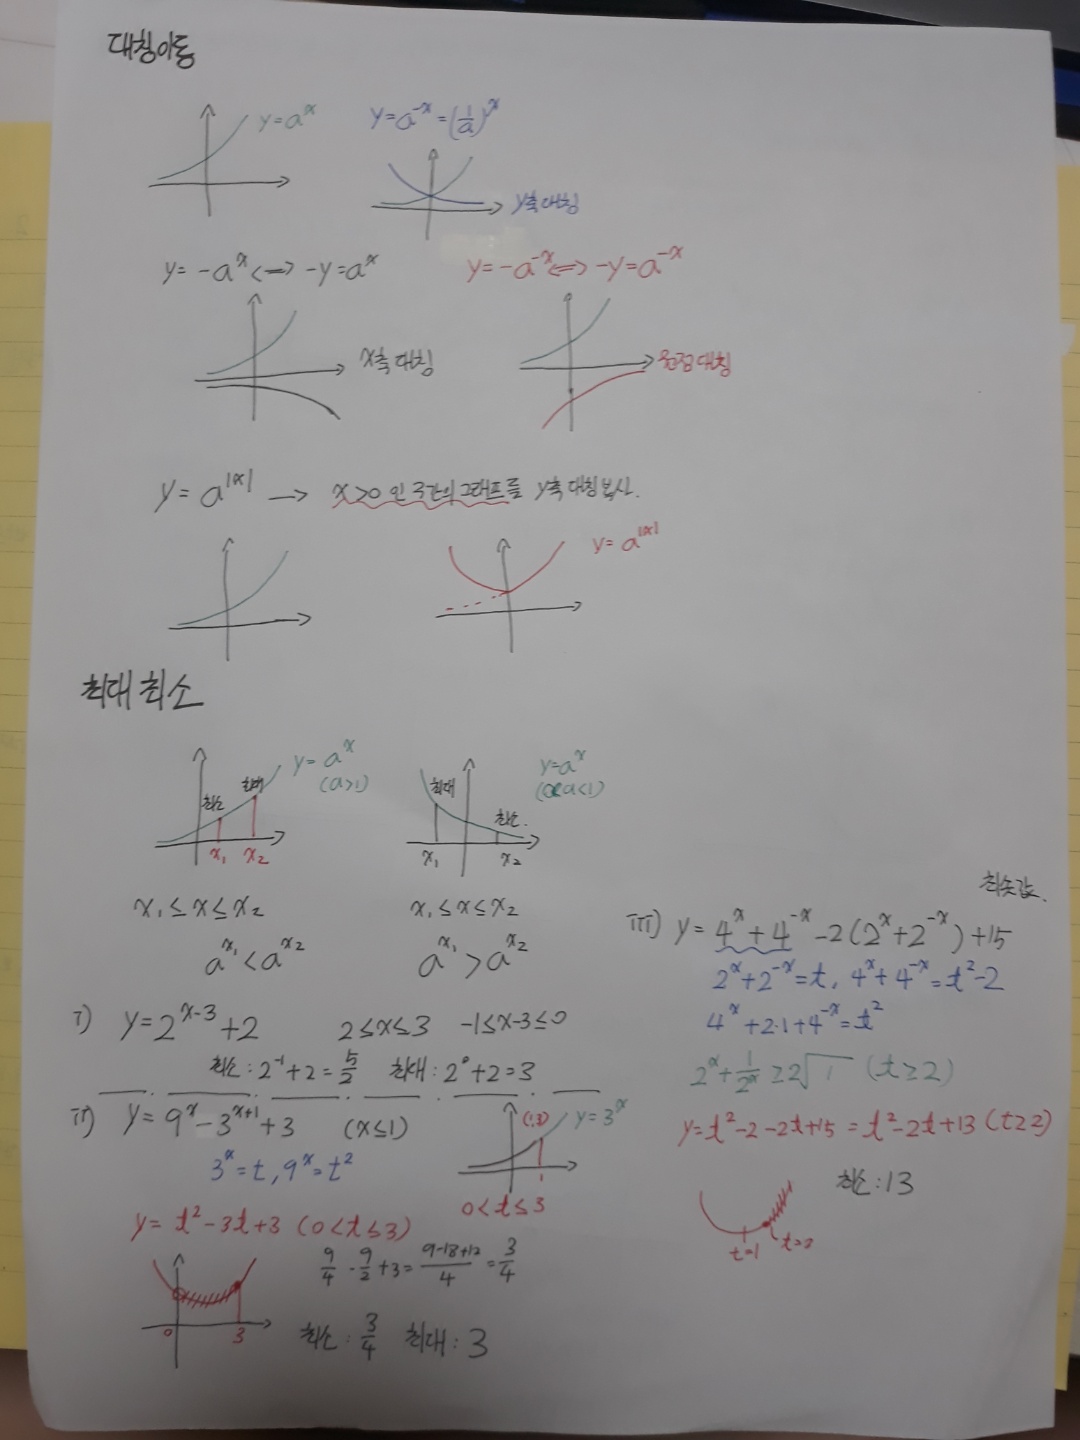 대칭이동
y=a^x
y=a^-x=(1/a)^x
y축대칭
y=-a^x<=>-y=a^x
y=-a^-x<=>-y=a^-x
x축대칭
원점대칭
y=a^|x| → x>0 인 구간의 그래프를 y축 대칭 복사.
y=a^|x|
최대 최소
y=a^x
(a>1)
최소 최대
x₁ x₂
y=a^x
(0<a<1)
최대 최소.
x₁ x₂
x₁≤x≤x₂
a^x₁<a^x₂
x₁≤x≤x₂
a^x₁>a^x₂
i) y=2^x-3+2 2≤x≤3 -1≤x-3≤0
최소:2^-1+2=5/2 최대:2^0+2=3
ii) y=9^x-3^x+1+3 (x≤1)
3^x=t, 9^x=t²
y=3^x
1
0<t≤3
y=t²-3t+3 (0<t≤3)
9/4-9/2+3=(9-18+12)/4=3/4
0 3
최소:3/4 최대:3
최솟값.
iii) y=4^x+4^-x-2(2^x+2^-x)+15
2^x+2^-x=t, 4^x+4^-x=t²-2
4^x+2·1+4^-x=t²
2^x+1/2^x≥2√1 (t≥2)
y=t²-2-2t+15=t²-2t+13 (t≥2)
최소:13
t=1 t=2